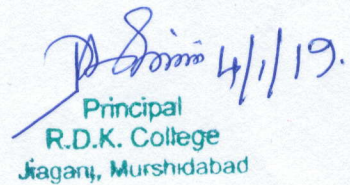 4/1/19.
Principal
R.D.K. College
Jiaganj, Murshidabad